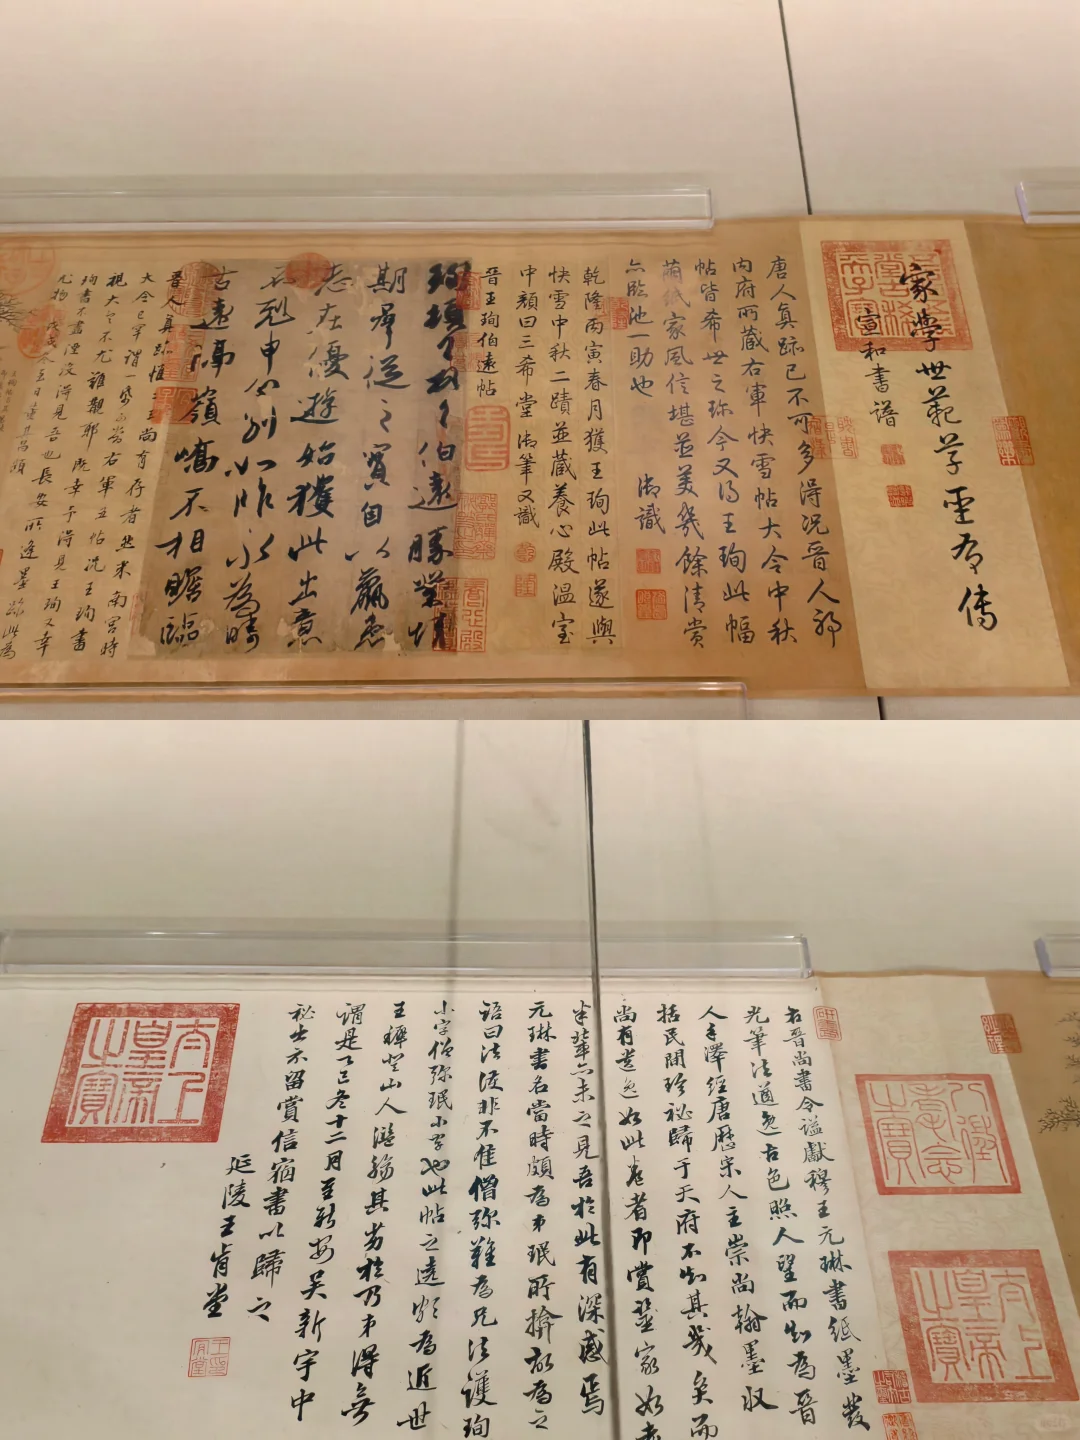 家學世範草聖有傳
宣和書譜
唐人真跡已不可多得況晉人耶
內府所藏右軍快雪帖大令中秋
帖皆希世之珍今又得王珣此幅
繭紙家風信堪並美幾餘清賞
亦臨池一助也 御識
乾隆丙寅春月獲王珣此帖遂與
快雪中秋二蹟並藏養心殿溫室
中顏曰三希堂御筆又識
晉王珣伯遠帖
珣頓首頓首伯遠勝業情
期群從之寶自以羸患
志在優遊始獲此出意
不剋申分別如昨永為疇
古遠隔嶺嶠不相瞻臨
晉人真跡惟二王尚有存者然米南宮時
大令已罕謂一紙可當右軍五帖況王珣書
視大令不尤難覯耶既幸予得見王珣又幸
珣書不盡湮沒得見吾也長安所逢墨跡此為
尤物 戊戌冬至日董其昌題
八徵耄念之寶
太上皇帝之寶
右晉尚書令謚獻穆王元琳書紙墨發
光筆法遒逸古色照人望而知為晉
人手澤經唐歷宋人主崇尚翰墨收
括民間珍秘歸于天府不知其幾矣而
尚有遺逸如此卷者即賞鑒家如
半輩亦未之見吾於此有深感焉
元琳書名當時頗為弟珉所揜故為之
語曰法護非不佳僧彌難為兄法護珣
小字僧彌珉小字也此帖之遠頗為近世
王穉登山人濫觴其
謂是了己冬十二月至新安吳新宇中
秘出示留賞信宿書以歸之
延陵王肯堂
太上皇帝之寶